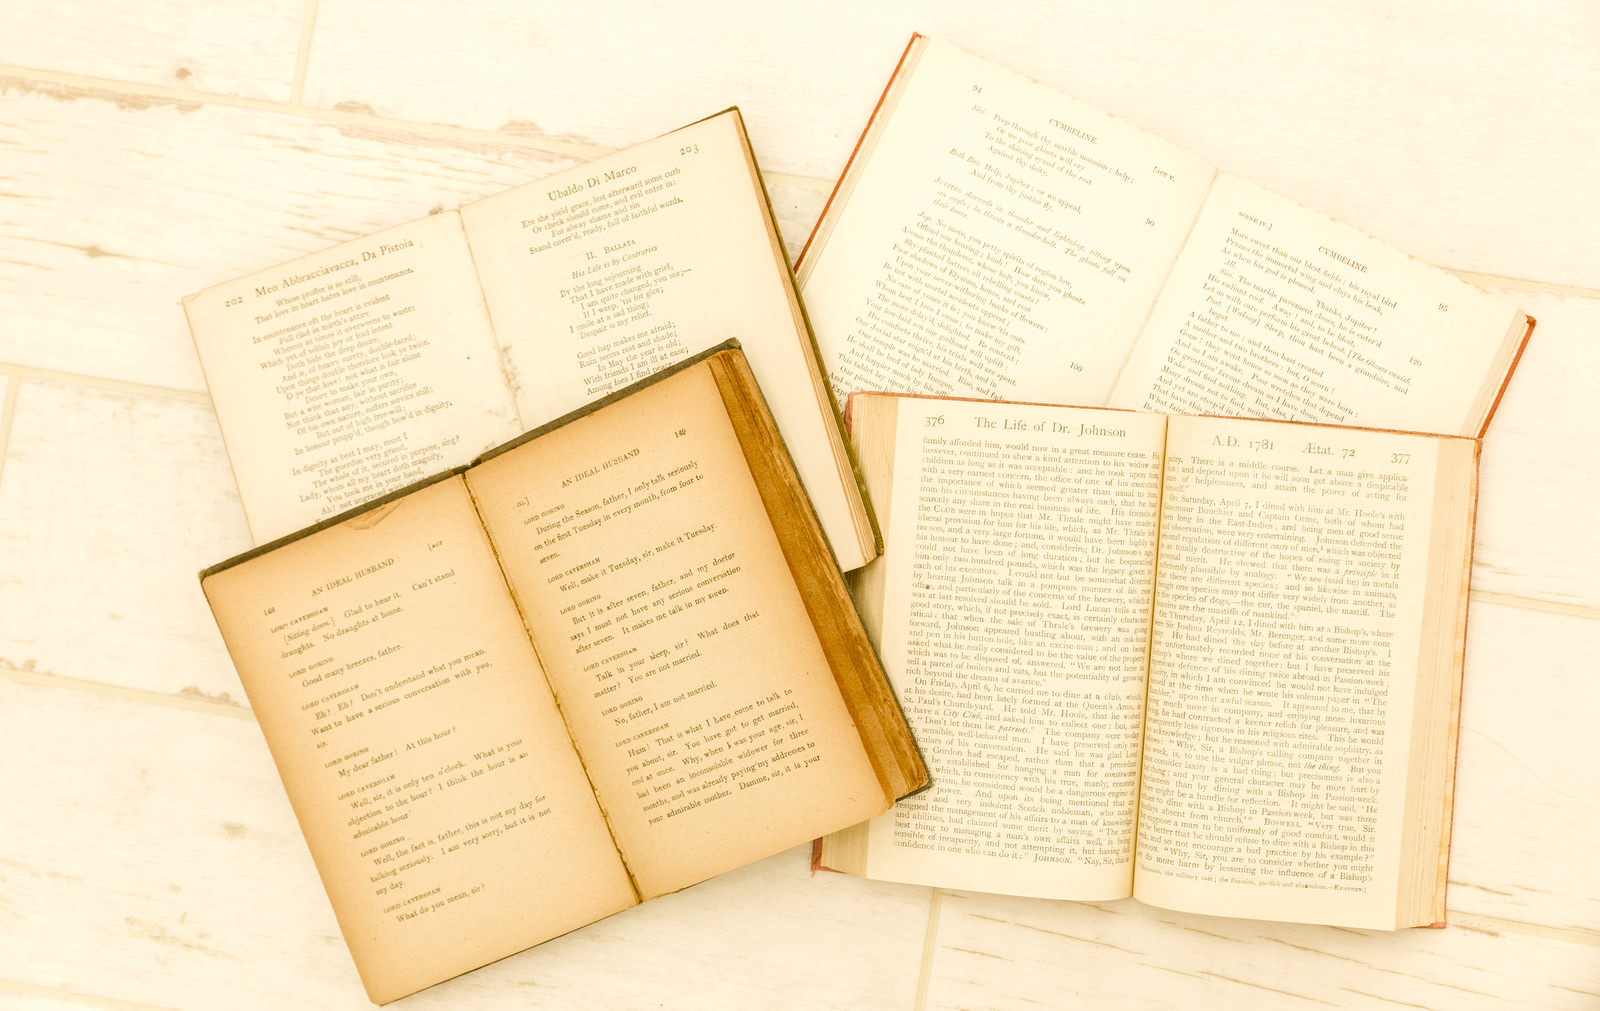 202 Meo Abbracciavacca, Da Pistoia
Whose proffer is so still,
That love in heart hates love in countenance.
In countenance oft the heart is evident
Full clad in mirth's attire
Wherein at times it overweens to waste:
Yet of selfish joy or foul intent
Doth hide the deep desire,
And is, of heavy surety, double-faced;
Upon things double therefore look ye twice.
O ye that love! not what is fair alone
Desire to make your own,
But a wise woman, fair in purity;
Nor think that any, without sacrifice
Of his own nature, suffers service still;
But out of high free-will;
In honour propp'd, though bow'd in dignity,
In dignity as best I may, must I
The guerdon very grand,
The whole of it, secured in purpose, sing?
Lady, whom all my heart doth magnify,
You took me in your hand,
Ah! not ungraced with other
Ubaldo Di Marco 203
Ere she yield grace, lest afterward some curb
Or check should come, and evil enter in:
For alway shame and sin
Stand cover'd, ready, full of faithful words.
II. BALLATA
His Life is by Contraries
By the long sojourning
That I have made with grief,
I am quite changed, you see;—
If I weep, 'tis for glee;
I smile at a sad thing;
Despair is my relief.
Good hap makes me afraid;
Ruin seems rest and shade;
In May the year is old;
With friends I am ill at ease;
Among foes I find peace;
94 CYMBELINE [ACT V.
Sici. Peep through thy marble mansion; help;
Or we poor ghosts will cry
To the shining synod of the rest
Against thy deity.
Both Bro. Help, Jupiter; or we appeal, 90
And from thy justice fly.
JUPITER descends in thunder and lightning, sitting upon
an eagle: he throws a thunderbolt. The ghosts fall on
their knees.
Jup. No more, you petty spirits of region low,
Offend our hearing; hush! How dare you ghosts
Accuse the thunderer, whose bolt, you know,
Sky-planted batters all rebelling coasts?
Poor shadows of Elysium, hence, and rest
Upon your never-withering banks of flowers:
Be not with mortal accidents opprest;
No care of yours it is; you know 'tis ours. 100
Whom best I love I cross; to make my gift,
The more delay'd, delighted. Be content;
Your low-laid son our godhead will uplift:
His comforts thrive, his trials well are spent.
Our Jovial star reign'd at his birth, and in
Our temple was he married. Rise, and fade.
He shall be lord of lady Imogen,
And happier much by his affliction made.
This tablet lay upon his breast, wherein
SCENE IV.] CYMBELINE 95
More sweet than our blest fields: his royal bird
Prunes the immortal wing and cloys his beak,
As when his god is pleased.
All. Thanks, Jupiter!
Sici. The marble pavement closes, he is enter'd 120
His radiant roof. Away! and, to be blest,
Let us with care perform his great behest. [The Ghosts vanish.
Post. [Waking] Sleep, thou hast been a grandsire, and
begot
A father to me; and thou hast created
A mother and two brothers: but, O scorn!
Gone! they went hence so soon as they were born:
And so I am awake. Poor wretches that depend
On greatness' favour dream as I have done,
Wake and find nothing. But, alas, I swerve:
148 AN IDEAL HUSBAND [ACT
LORD CAVERSHAM
[Sitting down.] Glad to hear it. Can't stand
draughts. No draughts at home.
LORD GORING
Good many breezes, father.
LORD CAVERSHAM
Eh? Eh? Don't understand what you mean.
Want to have a serious conversation with you,
sir.
LORD GORING
My dear father! At this hour?
LORD CAVERSHAM
Well, sir, it is only ten o'clock. What is your
objection to the hour? I think the hour is an
admirable hour
LORD GORING
Well, the fact is, father, this is not my day for
talking seriously. I am very sorry, but it is not
my day.
LORD CAVERSHAM
What do you mean, sir?
III.] AN IDEAL HUSBAND 149
LORD GORING
During the Season, father, I only talk seriously
on the first Tuesday in every month, from four to
seven.
LORD CAVERSHAM
Well, make it Tuesday, sir, make it Tuesday.
LORD GORING
But it is after seven, father, and my doctor
says I must not have any serious conversation
after seven. It makes me talk in my sleep.
LORD CAVERSHAM
Talk in your sleep, sir? What does that
matter? You are not married.
LORD GORING
No, father, I am not married.
LORD CAVERSHAM
Hum! That is what I have come to talk to
you about, sir. You have got to get married,
and at once. Why, when I was your age, sir, I
had been an inconsolable widower for three
months, and was already paying my addresses to
your admirable mother. Damme, sir, it is your
376 The Life of Dr. Johnson
family afforded him, would now in a great measure cease. He
however, continued to shew a kind attention to his widow and
children as long as it was acceptable: and he took upon him,
with a very earnest concern, the office of one of his executors,
the importance of which seemed greater than usual to him,
from his circumstances having been always such, that he had
scarcely any share in the real business of life. His friends of
the CLUB were in hopes that Mr. Thrale might have made a
liberal provision for him for his life, which, as Mr. Thrale left
no son, and a very large fortune, it would have been highly to
his honour to have done; and, considering Dr. Johnson's age,
could not have been of long duration; but he bequeathed
him only two hundred pounds, which was the legacy given to
each of his executors. I could not but be somewhat diverted
by hearing Johnson talk in a pompous manner of his new
office, and particularly of the concerns of the brewery, which it
was at last resolved should be sold. Lord Lucan tells a very
good story, which, if not precisely exact, is certainly characteristical:
that when the sale of Thrale's brewery was going
forward, Johnson appeared bustling about, with an ink-horn
and pen in his button-hole, like an excise-man; and on being
asked what he really considered to be the value of the property
which was to be disposed of, answered, "We are not here to
sell a parcel of boilers and vats, but the potentiality of growing
rich beyond the dreams of avarice."
On Friday, April 6, he carried me to dine at a club, which,
at his desire, had been lately formed at the Queen's Arms, in
St. Paul's Church-yard. He told Mr. Hoole, that he wished
to have a City Club, and asked him to collect one; but, said
"Don't let them be patriots." The company were to-day
sensible, well-behaved men. I have preserved only two
of his conversation. He said he was glad Lord
Gordon had escaped, rather than that a precedent
be established for hanging a man for constructive
which, in consistency with his true, manly, constitutional
he considered would be a dangerous engine of
power. And upon its being mentioned that an
and very indolent Scotch nobleman, who totally
resigned the management of his affairs to a man of knowledge
and abilities, had claimed some merit by saying, "The next
best thing to managing a man's own affairs well, is being
sensible of incapacity, and not attempting it, but having full
confidence in one who can do it:" JOHNSON. "Nay, Sir, this is
A.D. 1781 Ætat. 72 377
There is a middle course. Let a man give
and depend upon it he will soon get above a despicable
of helplessness, and attain the power of acting for
On Saturday, April 7, I dined with him at Mr. Hoole's with
Boucher and Captain Orme, both of whom had
long in the East-Indies; and being men of good sense
observation, were very entertaining. Johnson defended the
regulation of different casts of men, which was objected
as totally destructive of the hopes of rising in society by
merit. He shewed that there was a principle in it
plausible by analogy. "We see (said he) in metals
there are different species; and so likewise in animals,
one species may not differ very widely from another, as
the species of dogs,—the cur, the spaniel, the mastiff. The
are the mastiffs of mankind."
On Thursday, April 12, I dined with him at a Bishop's, where
Sir Joshua Reynolds, Mr. Berenger, and some more
He had dined the day before at another Bishop's. I
unfortunately recorded none of his conversation at the
where we dined together: but I have preserved his
defence of his dining twice abroad in Passion-week;
in which I am convinced he would not have indulged
at the time when he wrote his solemn paper in "The
upon that awful season. It appeared to me, that by
much more in company, and enjoying more luxurious
he had contracted a keener relish for pleasure, and was
less rigorous in his religious rites. This he would
"Why, Sir, a Bishop's calling company together in
week, is, to use the vulgar phrase, not the thing. But you
consider laxity is a bad thing; but preciseness is also a
thing; and your general character may be more hurt by
than by dining with a Bishop in Passion-week.
might be a handle for reflection. It might be said, 'He
to dine with a Bishop in Passion-week, but was three
absent from church.'" BOSWELL. "Very true, Sir.
suppose a man to be uniformly of good conduct, would it
be better that he should refuse to dine with a Bishop in this
and so not encourage a bad practice by his example?"
"Why, Sir, you are to consider whether you might
do more harm by lessening the influence of a Bishop's